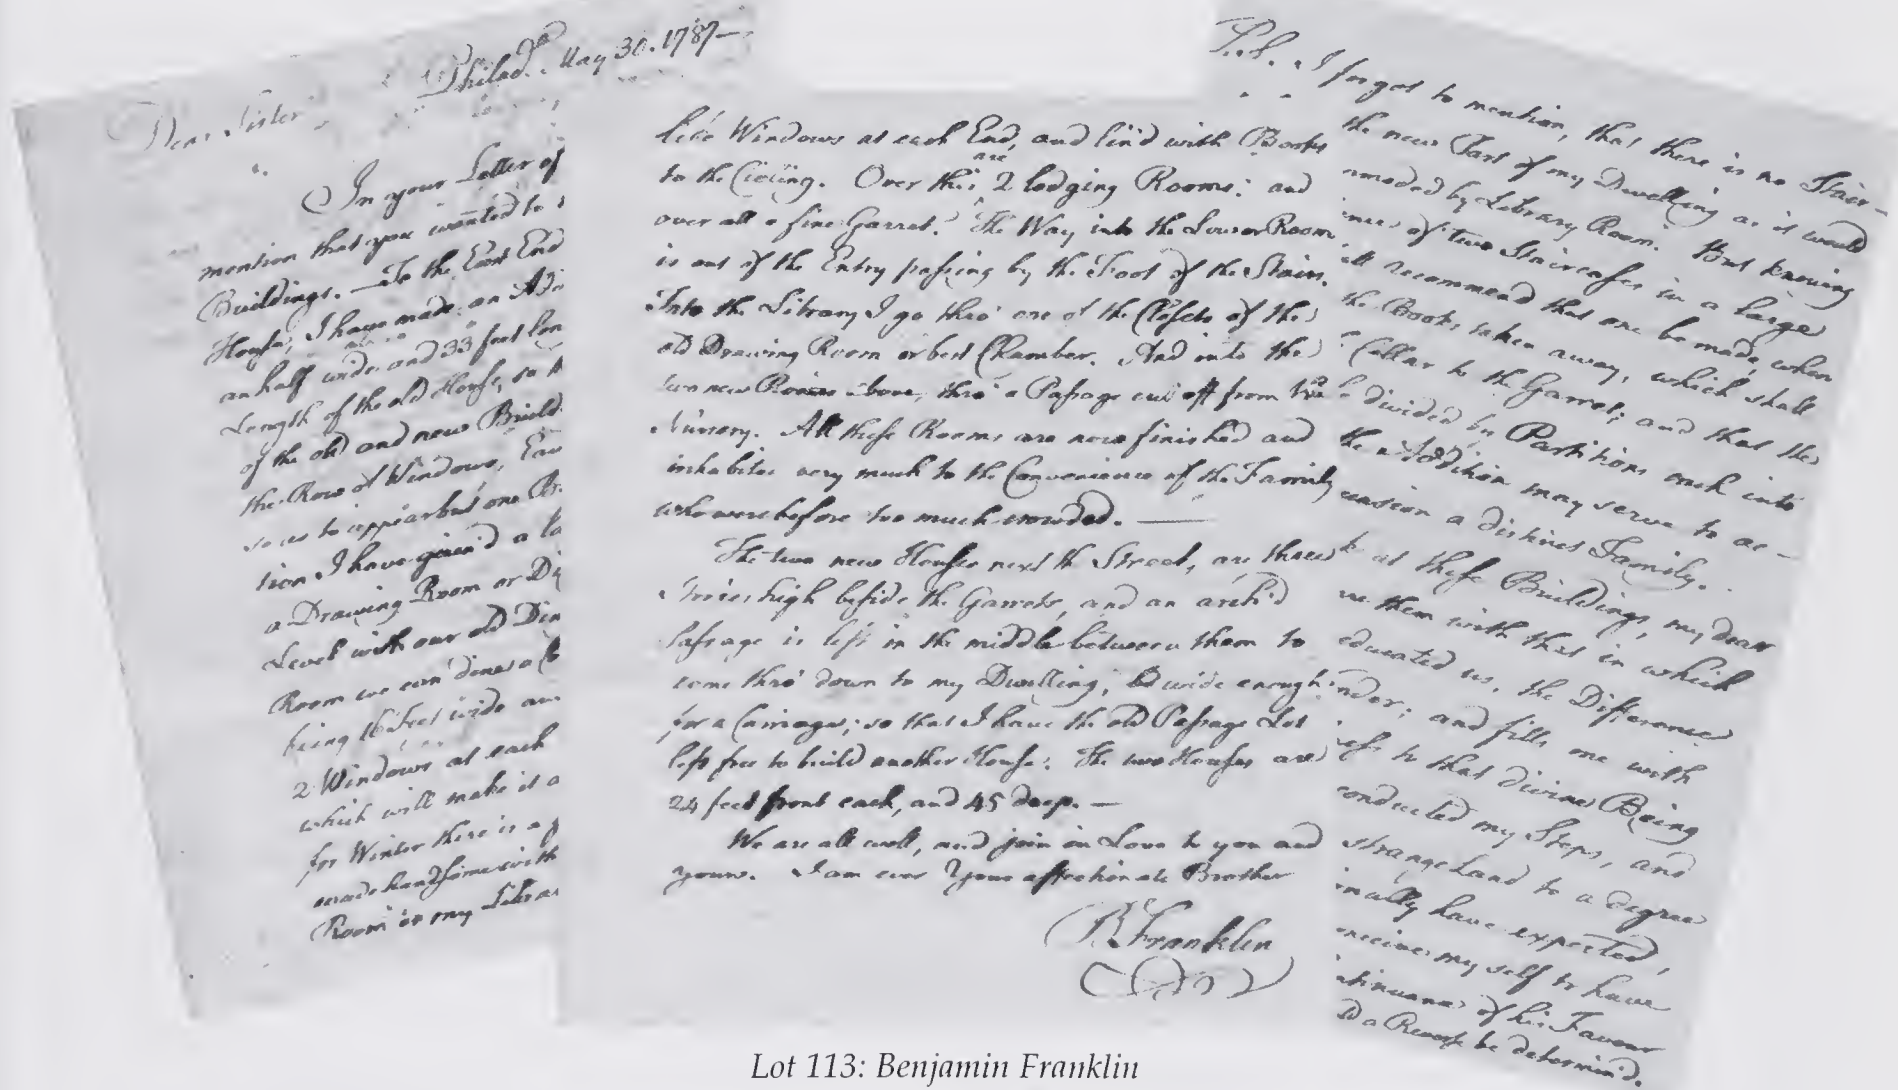 Philad.ª May 30. 1787 —
Dear Sister
In your Letter of
mention that you wanted to
Buildings. — To the East End
House, I have made an Ad
an half wide and 33 feet lon
Length of the old House, so
of the old and new Build
the Row of Windows, Eav
so as to appear but one
tion I have gain'd a la
a Drawing Room or Di
Level with our old Din
Room we can dine a
being 16 feet wide an
2 Windows at each
which will make it a
for Winter there is a
made handsome with
Room is my Libra
like Windows at each End, and lin'd with Books
to the Cieling. Over this are 2 lodging Rooms: and
over all a fine Garret. The Way into the Lower Room
is out of the Entry passing by the Foot of the Stairs.
Into the Library I go thro' one of the Closets of the
old Drawing Room or bed Chamber. And into the
two new Rooms above, thro' a Passage cut off from the
Nursery. All these Rooms are now finished and
inhabited very much to the Convenience of the Family
who were before too much crowded. —
The two new Houses next the Street, are three
Stories high beside the Garrets, and an arch'd
Passage is left in the middle between them to
come thro' down to my Dwelling, wide enough
for a Carriage; so that I have the old Passage Lot
left free to build another House. The two Houses are
24 feet front each, and 45 deep. —
We are all well, and join in Love to you and
yours. I am ever Your affectionate Brother
B Franklin
P.S. I forgot to mention, that there is no Stair-
the new Part of my Dwelling as it would
library Room. But knowing
of two Staircases in a large
recommend that one be made, when
the Books taken away, which shall
Cellar to the Garret; and that the
divided by Partitions each into
the Addition may serve to ac-
a distinct Family.
at these Buildings, my dear
them with that in which
educated us, the Difference
and fills me with
to that divine Being
conducted my Steps, and
strange Land to a degree
have expected,
my self to have
of his Favour
a Reverse be determin'd.
Lot 113: Benjamin Franklin